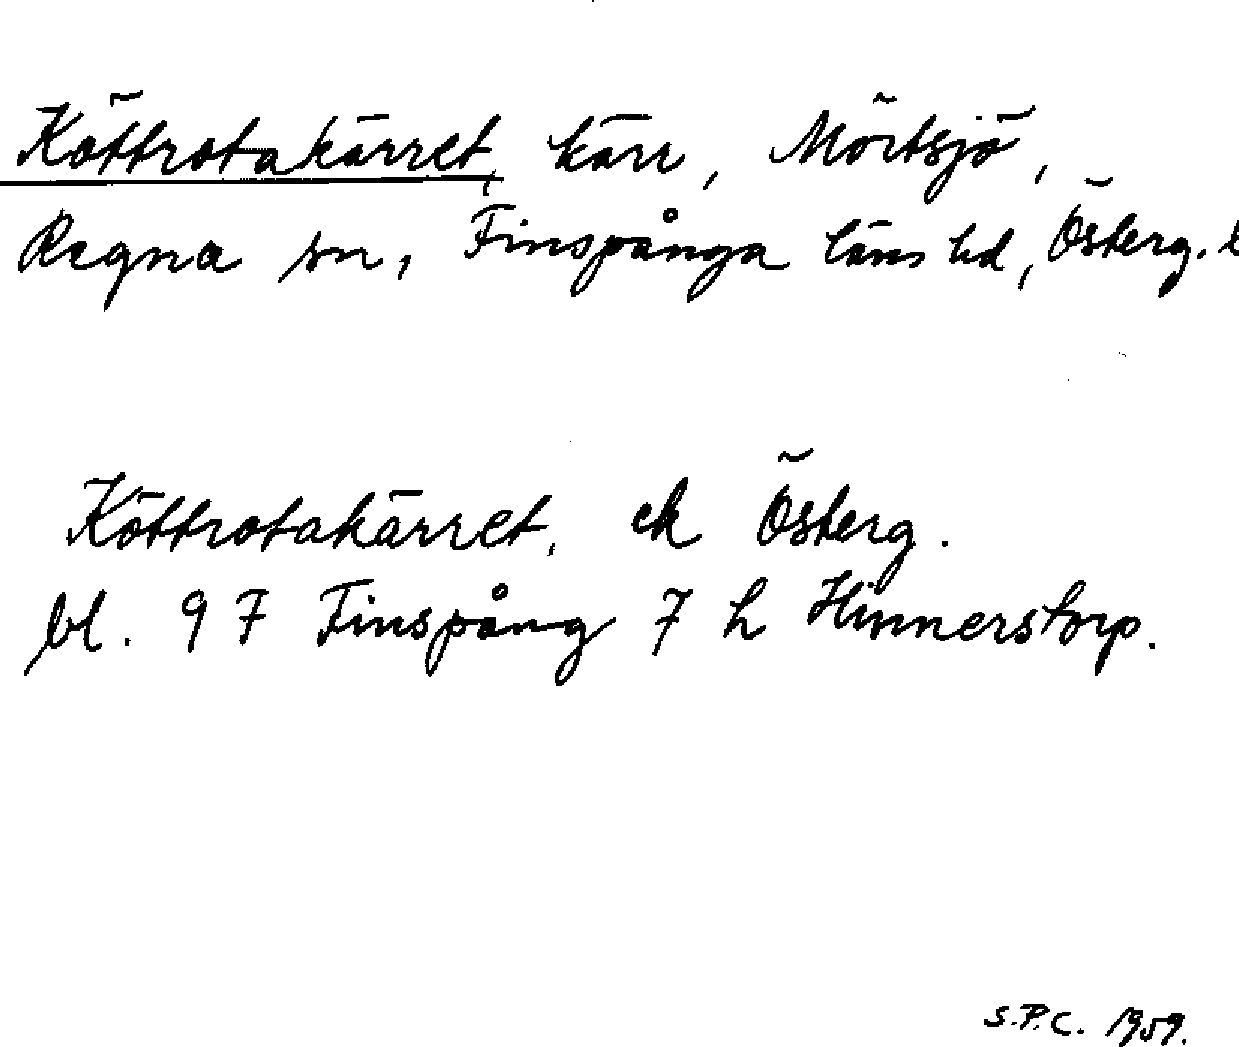 Köttrotakärret, kärr, Mörtsjö,
Regna sn, Finspånga läns hd, Österg. l
Köttrotakärret, ek Österg.
bl. 9 F Finspång 7 h Hinnerstorp.
S.P.C. 1959.